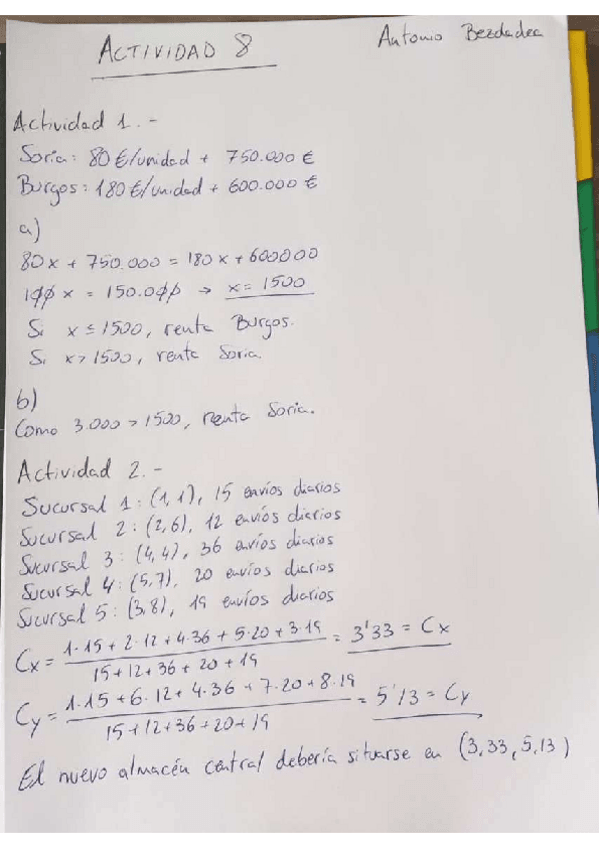 ACTIVIDAD 8
Antonio Bezdadea
Actividad 1.-
Soria: 80 €/unidad + 750.000 €
Burgos: 180 €/unidad + 600.000 €
a)
80x + 750.000 = 180x + 600000
100x = 150.000 → x = 1500
Si x ≤ 1500, renta Burgos.
Si x > 1500, renta Soria.
b)
Como 3.000 > 1500, renta Soria.
Actividad 2.-
Sucursal 1: (1,1), 15 envíos diarios
Sucursal 2: (2,6), 12 envíos diarios
Sucursal 3: (4,4), 36 envíos diarios
Sucursal 4: (5,7), 20 envíos diarios
Sucursal 5: (3,8), 19 envíos diarios
Cx = 1·15 + 2·12 + 4·36 + 5·20 + 3·19 / 15+12+36+20+19 = 3'33 = Cx
Cy = 1·15 + 6·12 + 4·36 + 7·20 + 8·19 / 15+12+36+20+19 = 5'13 = Cy
El nuevo almacén central debería situarse en (3,33, 5,13)